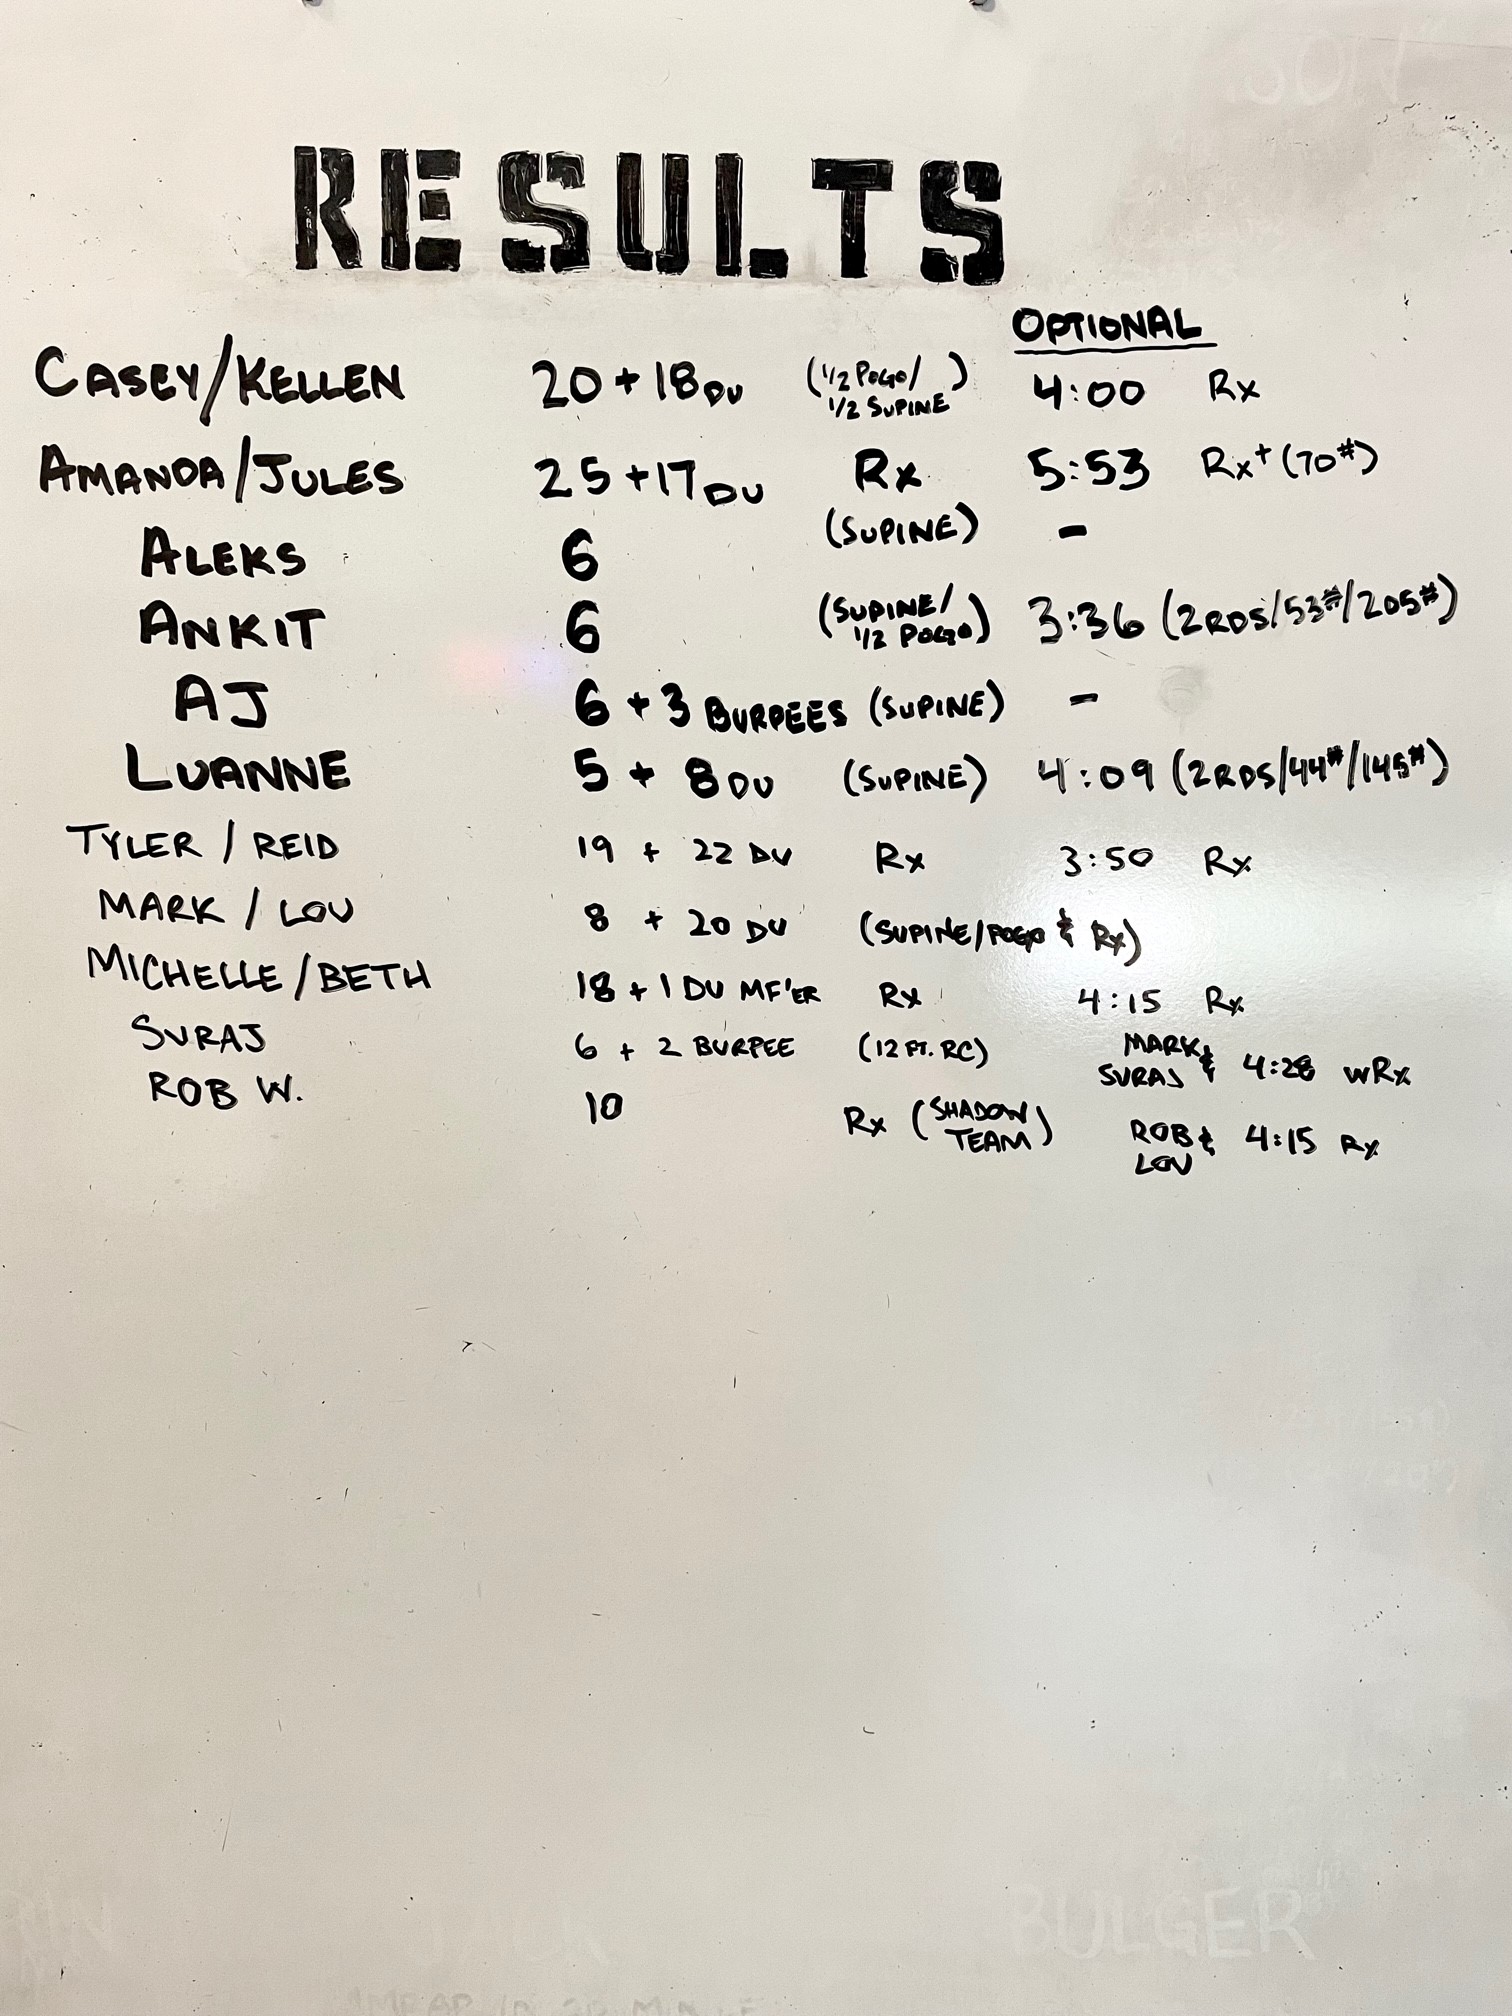 RESULTS
OPTIONAL
CASEY/KELLEN 20 + 18 DU (1/2 POGO/ 1/2 SUPINE) 4:00 Rx
AMANDA/JULES 25 + 17 DU Rx 5:53 Rx+ (70#)
ALEKS 6 (SUPINE) -
ANKIT 6 (SUPINE/ 1/2 POGO) 3:36 (2RDS/53#/205#)
AJ 6 + 3 BURPEES (SUPINE) -
LUANNE 5 + 8 DU (SUPINE) 4:09 (2RDS/44#/145#)
TYLER / REID 19 + 22 DU Rx 3:50 Rx
MARK / LOU 8 + 20 DU (SUPINE/POGO & Rx)
MICHELLE/BETH 18 + 1 DU MF'ER Rx 4:15 Rx
SURAJ 6 + 2 BURPEE (12 FT. RC) MARK & SURAJ 4:28 wRx
ROB W. 10 Rx (SHADOW TEAM) ROB & LOU 4:15 Rx
BULGER